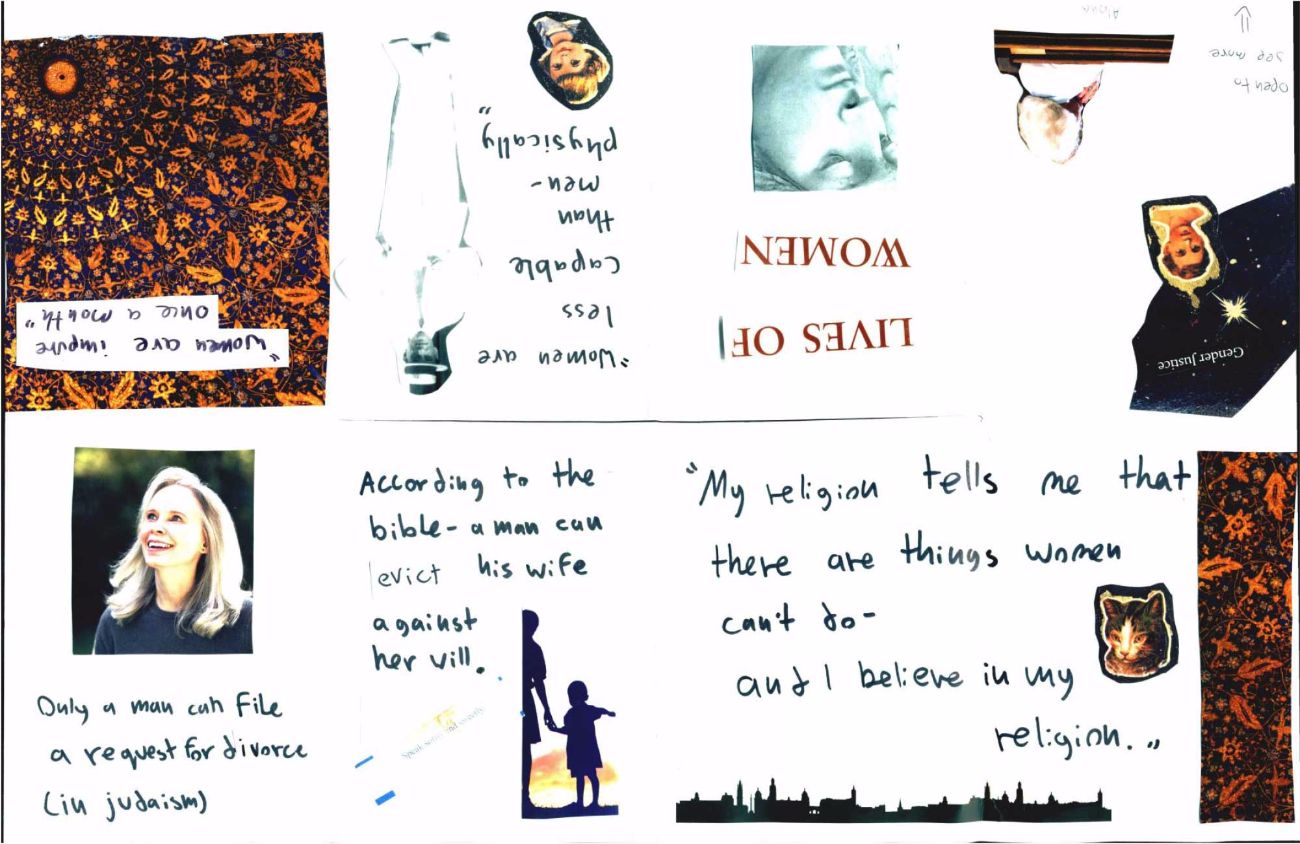 "Women are impure
once a month"
"Women are
less
capable
than
men-
physically"
LIVES OF
WOMEN
Gender Justice
open to
see more
Only a man can file
a request for divorce
(in judaism)
According to the
bible- a man can
evict his wife
against
her vill.
Speak softly and
"My religion tells me that
there are things women
can't do-
and I believe in my
religion."